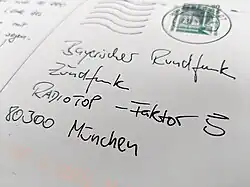 Bayerischer Rundfunk
Zündfunk
RADIOTOP - Faktor 5
80300 München